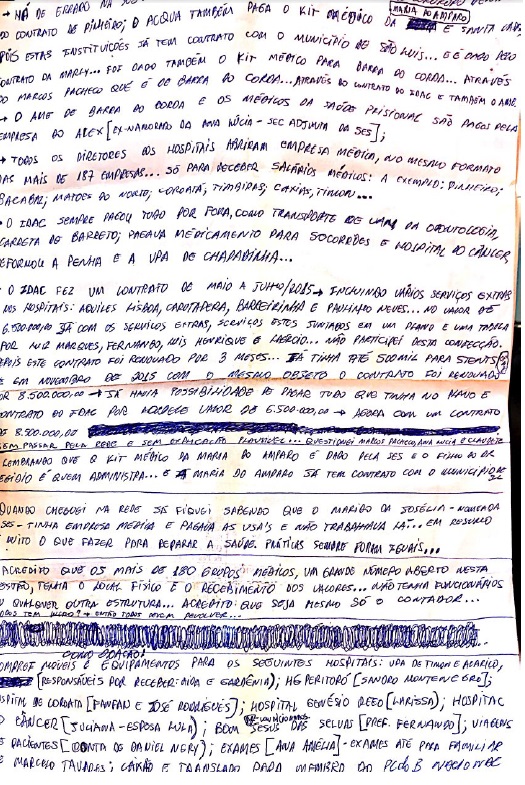 → HÁ DE ERRADO NA SU
DO CONTRATO DE PINHEIRO; O ACQUA TAMBÉM PAGA O KIT MÉDICO DA MARIA DO AMPARO E SANTA
PÓIS ESTAS INSTITUIÇÕES JÁ TEM CONTRATO COM O MUNICÍPIO DE SÃO LUIS... E É DADO PELO
CONTRATO DA MARLY... FOI DADO TAMBÉM O KIT MÉDICO PARA BARRA DO CORDA... ATRAVÉS
DO MARCOS PACHECO QUE É DE BARRA DO CORDA... ATRAVÉS DO CONTRATO DO IDAC E TAMBÉM O AME
→ O AME DE BARRA DO CORDA E OS MÉDICOS DA SAÚDE PRISIONAL SÃO PAGOS PELA
EMPRESA DO ALEX [EX-NAMORADO DA ANA LÚCIA - SEC ADJUNTA DA SES];
→ TODOS OS DIRETORES DOS HOSPITAIS ABRIRAM EMPRESA MÉDICA, NO MESMO FORMATO
DAS MAIS DE 187 EMPRESAS... SÓ PARA RECEBER SALÁRIOS MÉDICOS: A EXEMPLO: PINHEIRO;
BACABAL; MATÕES DO NORTE; COROATÁ; TIMBIRAS; CAXIAS; TIMON...
→ O IDAC SEMPRE PAGOU TUDO POR FORA, COMO TRANSPORTE DE UMA DA ODONTOLOGIA,
CARRETA DE BARRETO; PAGAVA MEDICAMENTO PARA SOCORRÕES E HOSPITAL DO CÂNCER,
REFORMOU A PENHA E A UPA DE CHAPADINHA...
→ O IDAC FEZ UM CONTRATO DE MAIO A JULHO/2015 → INCLUINDO VÁRIOS SERVIÇOS EXTRAS
NOS HOSPITAIS: AQUILES LISBOA, CARUTAPERA, BARREIRINHA E PAULINO NEVES... NO VALOR DE
6.500.000,00 JÁ COM OS SERVIÇOS EXTRAS, SERVIÇOS ESTES JUNTADOS EM UM PLANO E UMA TABELA
POR LUIZ MARQUES, FERNANDO, LUIS HENRIQUE E LAERCIO... NÃO PARTICIPEI DESTA CONFECÇÃO.
DEPOIS ESTE CONTRATO FOI RENOVADO POR 3 MESES... JÁ TINHA ATÉ 500 MIL PARA STENTS
E EM NOVEMBRO DE 2015 COM O MESMO OBJETO O CONTRATO FOI RENOVADO
POR 8.500.000,00 → JÁ HAVIA POSSIBILIDADE DE PAGAR TUDO QUE TINHA NO PLANO E
CONTRATO DO IDAC POR AQUELE VALOR DE 6.500.000,00 → AGORA COM UM CONTRATO
DE 8.500.000,00
SEM PASSAR PELA REDE E SEM EXPLICAÇÃO PLAUSÍVEL... QUESTIONEI MARCOS PACHECO, ANA LUCIA E
LEMBRANDO QUE O KIT MÉDICO DA MARIA DO AMPARO É DADO PELA SES E O FILHO DO DR
EGÍDIO É QUEM ADMINISTRA... E A MARIA DO AMPARO JÁ TEM CONTRATO COM O MUNICÍPIO DE
SL
QUANDO CHEGUEI NA REDE JÁ FIQUEI SABENDO QUE O MARIDO DA JOSÉLIA - NOMEADA
SES - TINHA EMPRESA MÉDICA E PAGAVA AS USA'S E NÃO TRABALHAVA LÁ... EM RESUMO
MUITO O QUE FAZER PARA REPARAR A SAÚDE. PRÁTICAS SEMPRE FORAM IGUAIS...
ACREDITO QUE OS MAIS DE 180 GRUPOS MÉDICOS, UM GRANDE NÚMERO ABERTO NESTA
GESTÃO, TENHA O LOCAL FÍSICO E O RECEBIMENTO DOS VALORES... NÃO TENHA FUNCIONÁRIOS
OU QUALQUER OUTRA ESTRUTURA... ACREDITO QUE SEJA MESMO SÓ O CONTADOR...
TEM LUCRO? → ENTÃO TODOS DEVEM DEVOLVER...
COMO DOAÇÃO:
COMPREI MÓVEIS E EQUIPAMENTOS PARA OS SEGUINTES HOSPITAIS: UPA DE TIMON E
[RESPONSÁVEIS POR RECEBER: AIDA E GARDÊNIA); HG PERITORÓ [SANDRO MONTENEGRO];
HOSPITAL DE COROATÁ [FANFAN E JOSÉ RODRIGUES]; HOSPITAL GENÉSIO REGO [LARISSA); HOSPITAL
DO CÂNCER [JULIANA - ESPOSA LULA); BOM JESUS DAS SELVAS [PREF. FERNANDO]; VIAGENS
DE PACIENTES [CONTA DO DANIEL NERY); EXAMES [ANA AMÉLIA] - EXAMES ATÉ PARA FAMILIAR
DE MARCELO TAVARES; CAIXÃO E TRANSLADO PARA MEMBRO DO PCdoB